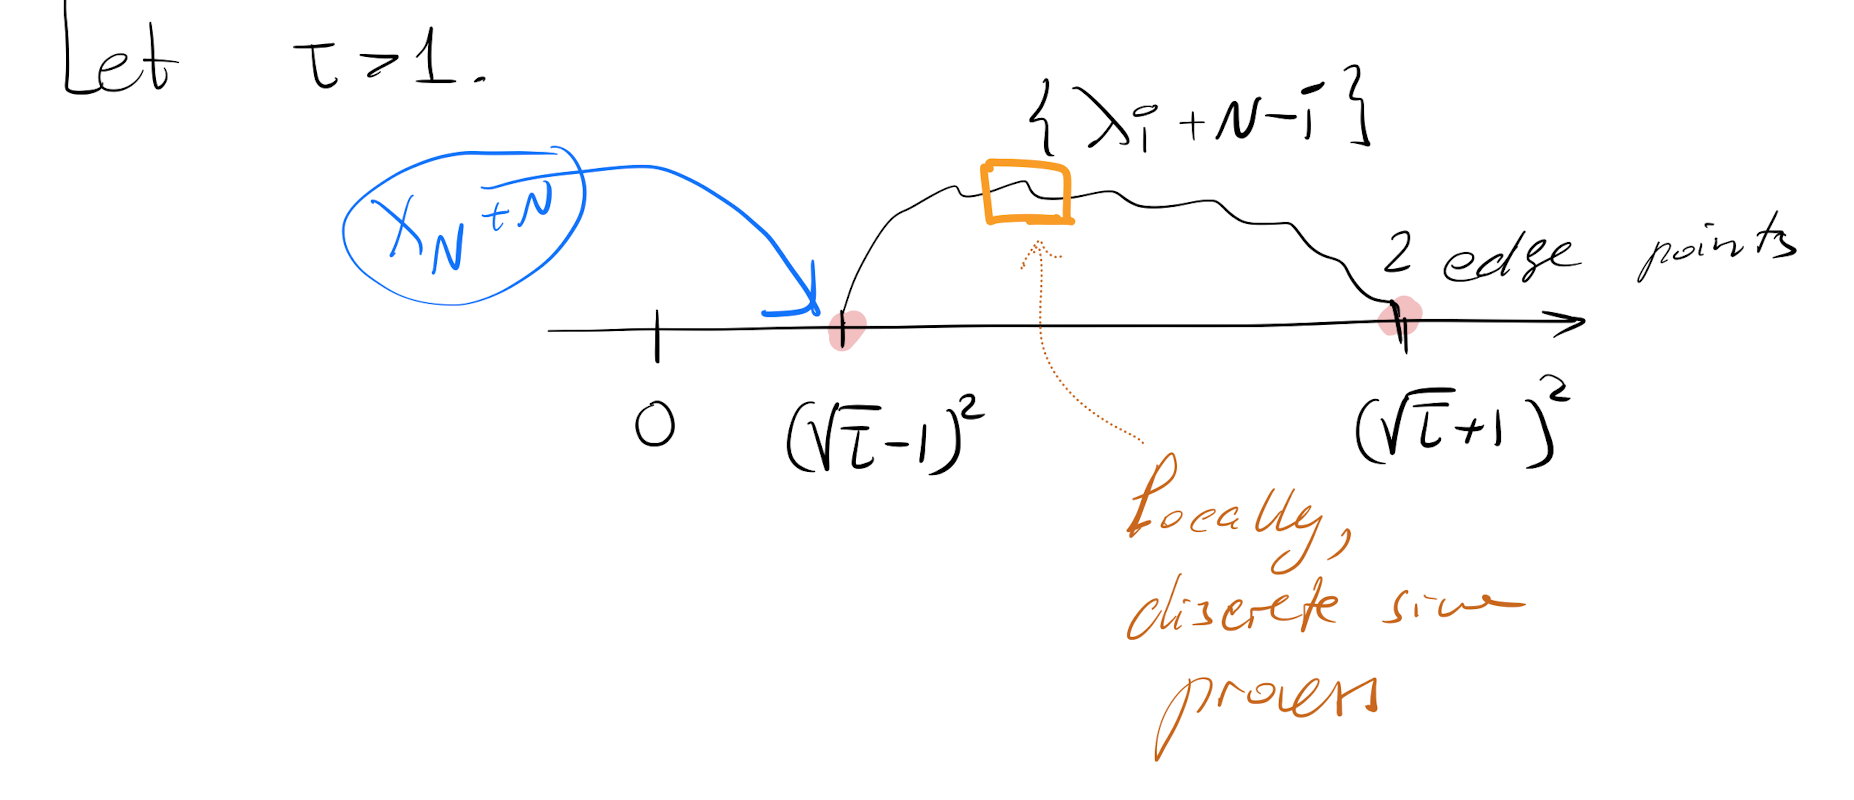 Let τ>1.
{λi+N-i}
XN+N
2 edge points
0 (√τ-1)² (√τ+1)²
Locally,
discrete sine
process